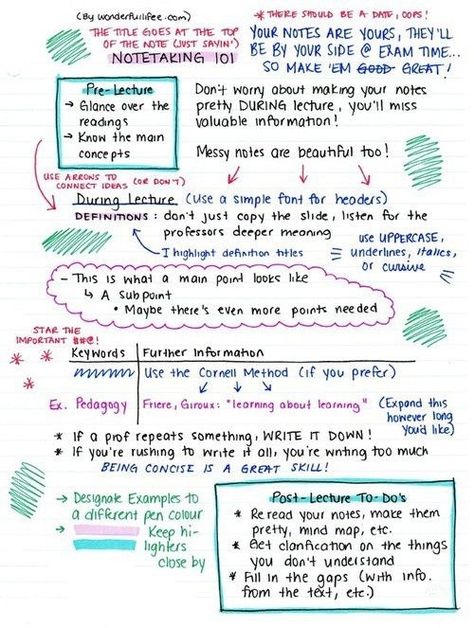 (By wonderfullifee.com)
* THERE SHOULD BE A DATE, OOPS!
THE TITLE GOES AT THE TOP
OF THE NOTE (JUST SAYIN')
NOTETAKING 101
YOUR NOTES ARE YOURS, THEY'LL
BE BY YOUR SIDE @ EXAM TIME...
SO MAKE 'EM GOOD GREAT!
Pre-Lecture
→ Glance over the
readings
→ Know the main
concepts
Don't worry about making your notes
pretty DURING lecture, you'll miss
valuable information!
Messy notes are beautiful too!
USE ARROWS TO
CONNECT IDEAS (OR DON'T)
During Lecture (Use a simple font for headers)
DEFINITIONS: don't just copy the slide, listen for the
professors deeper meaning
I highlight definition titles
use UPPERCASE,
underlines, italics,
or cursive
- This is what a main point looks like
↳ A Subpoint
• Maybe there's even more points needed
STAR THE
IMPORTANT #@!
Keywords | Further Information
Use the Cornell Method (if you prefer)
Ex. Pedagogy | Friere, Giroux: "learning about learning"
(Expand this
however long
you'd like)
* If a prof repeats something, WRITE IT DOWN!
* If you're rushing to write it all, you're writing too much
BEING CONCISE IS A GREAT SKILL!
→ Designate Examples to
a different pen colour
→ Keep hi-
lighters
close by
Post-Lecture To-Do's
* Reread your notes, make them
pretty, mind map, etc.
* Get clarification on the things
you don't understand
* Fill in the gaps (with info.
from the text, etc.)